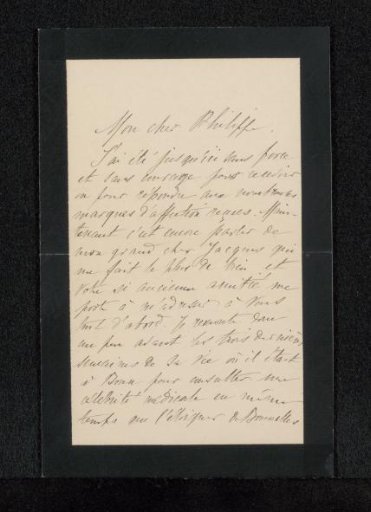 Mon cher Philippe.
J'ai été jusqu'ici sans force
et sans courage pour
ou pour répondre aux nombreuses
marques d'affection reçues. Main-
tenant c'est encore parler de
mon grand cher Jacques qui
me fait le plus de bien et
votre si ancienne amitié me
porte à m'adresser à vous
tout d'abord. Je remonte dans
un peu avant les trois dernières
semaines de sa vie où il était
à Bonn pour consulter une
célébrité médicale en même
temps que l'éloigner de Bruxelles